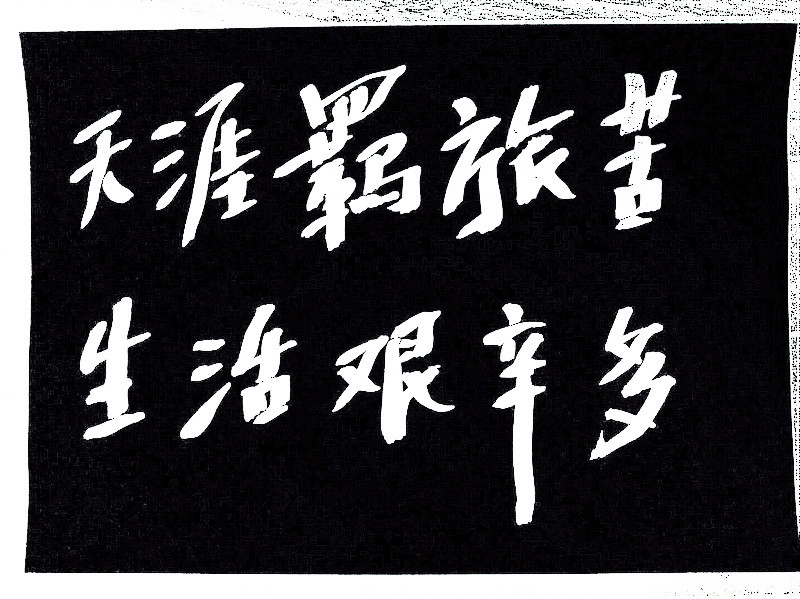 天涯羁旅苦
生活艰辛多